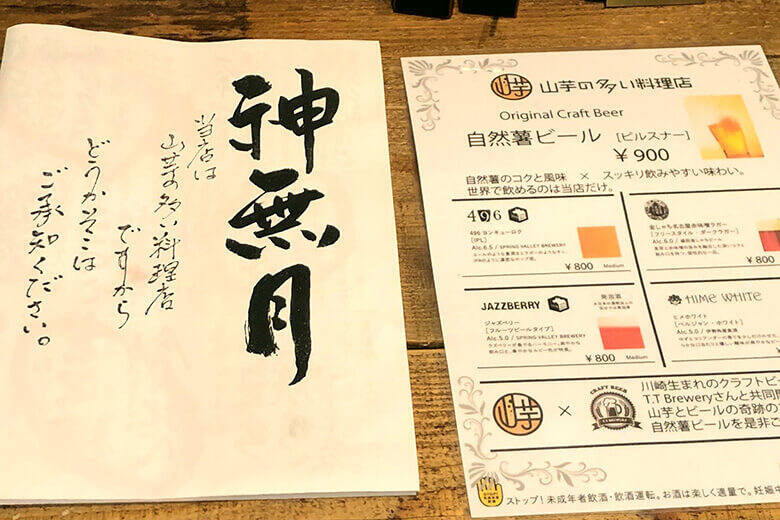 神無月
当店は
山芋の多い料理店
ですから
どうかそこは
ご承知ください。
山芋 山芋の多い料理店
Original Craft Beer
自然薯ビール [ピルスナー]
¥900
自然薯のコクと風味 × スッキリ飲みやすい味わい。
世界で飲めるのは当店だけ。
496
496 ヨンキューロク
[IPL]
Alc.6.5 / SPRING VALLEY BREWERY
¥800
Medium
金しゃち名古屋赤味噌ラガー
[フリースタイル・ダークラガー]
¥800
JAZZBERRY
発泡酒
ジャズベリー
[フルーツビールタイプ]
Alc.5.0 / SPRING VALLEY BREWERY
¥800
Medium
HIME WHITE
ヒメホワイト
[ベルジャン・ホワイト]
Alc.5.0 / 伊勢角屋麦酒
山芋 × CRAFT BEER
川崎生まれのクラフトビ
T.T Breweryさんと共同
山芋とビールの奇跡の
自然薯ビールを是非
ストップ!未成年者飲酒・飲酒運転。お酒は楽しく適量で。妊娠中